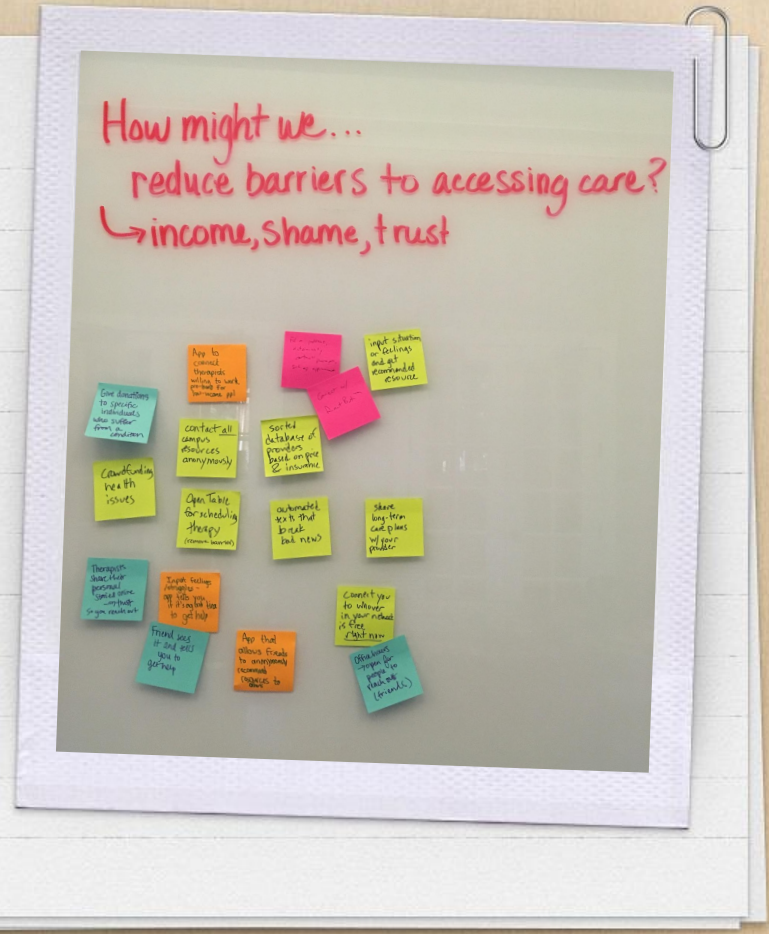 How might we...
reduce barriers to accessing care?
income, shame, trust
App to
connect
therapists
willing to work
for
low-income ppl
input situation
or feelings
and get
recommended
resource
Give donations
to specific
individuals
who suffer
from a
condition
contact all
campus
resources
anonymously
sorted
database of
providers
based on
& insurance
Crowdfunding
health
issues
Open Table
for scheduling
therapy
(remove barrier)
automated
texts that
break
bad news
share
long-term
care plans
w/ your
provider
Therapists
share their
personal
online
so you reach out
Input feelings
app tells you
if it's
to get help
Connect you
to whoever
in your network
is free
right now
Friend
it and tells
you to
get help
App that
allows friends
to anonymously
recommend
resources to
Office hours
open for
people to
reach out
(friends)